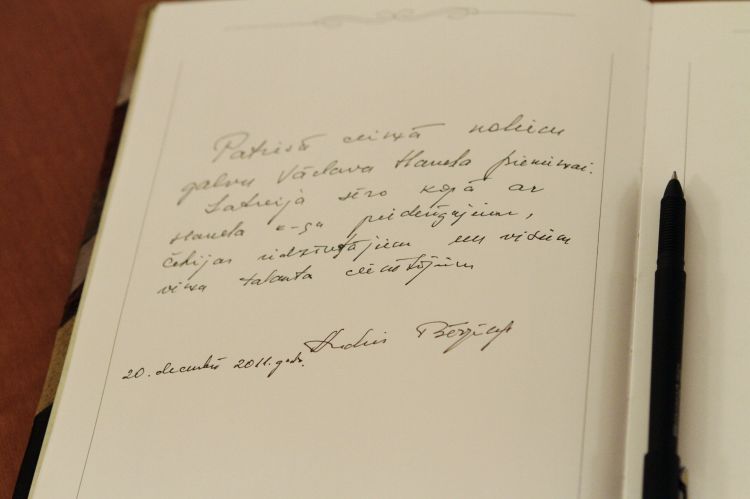 Patiesā cieņā noliecu
galvu Václava Havela piemiņai.
Latvija sēro kopā ar
Havela k-ga piederīgajiem,
Čehijas iedzīvotājiem un visiem
viņa talanta cienītājiem
Andris Bērziņš
20. decembris 2011. gads.